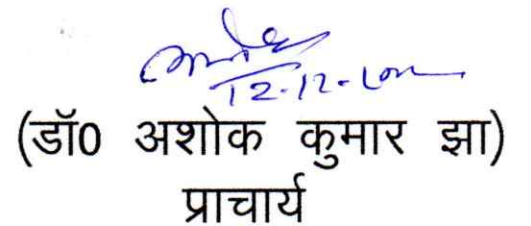 12-12-
(डॉ0 अशोक कुमार झा)
प्राचार्य